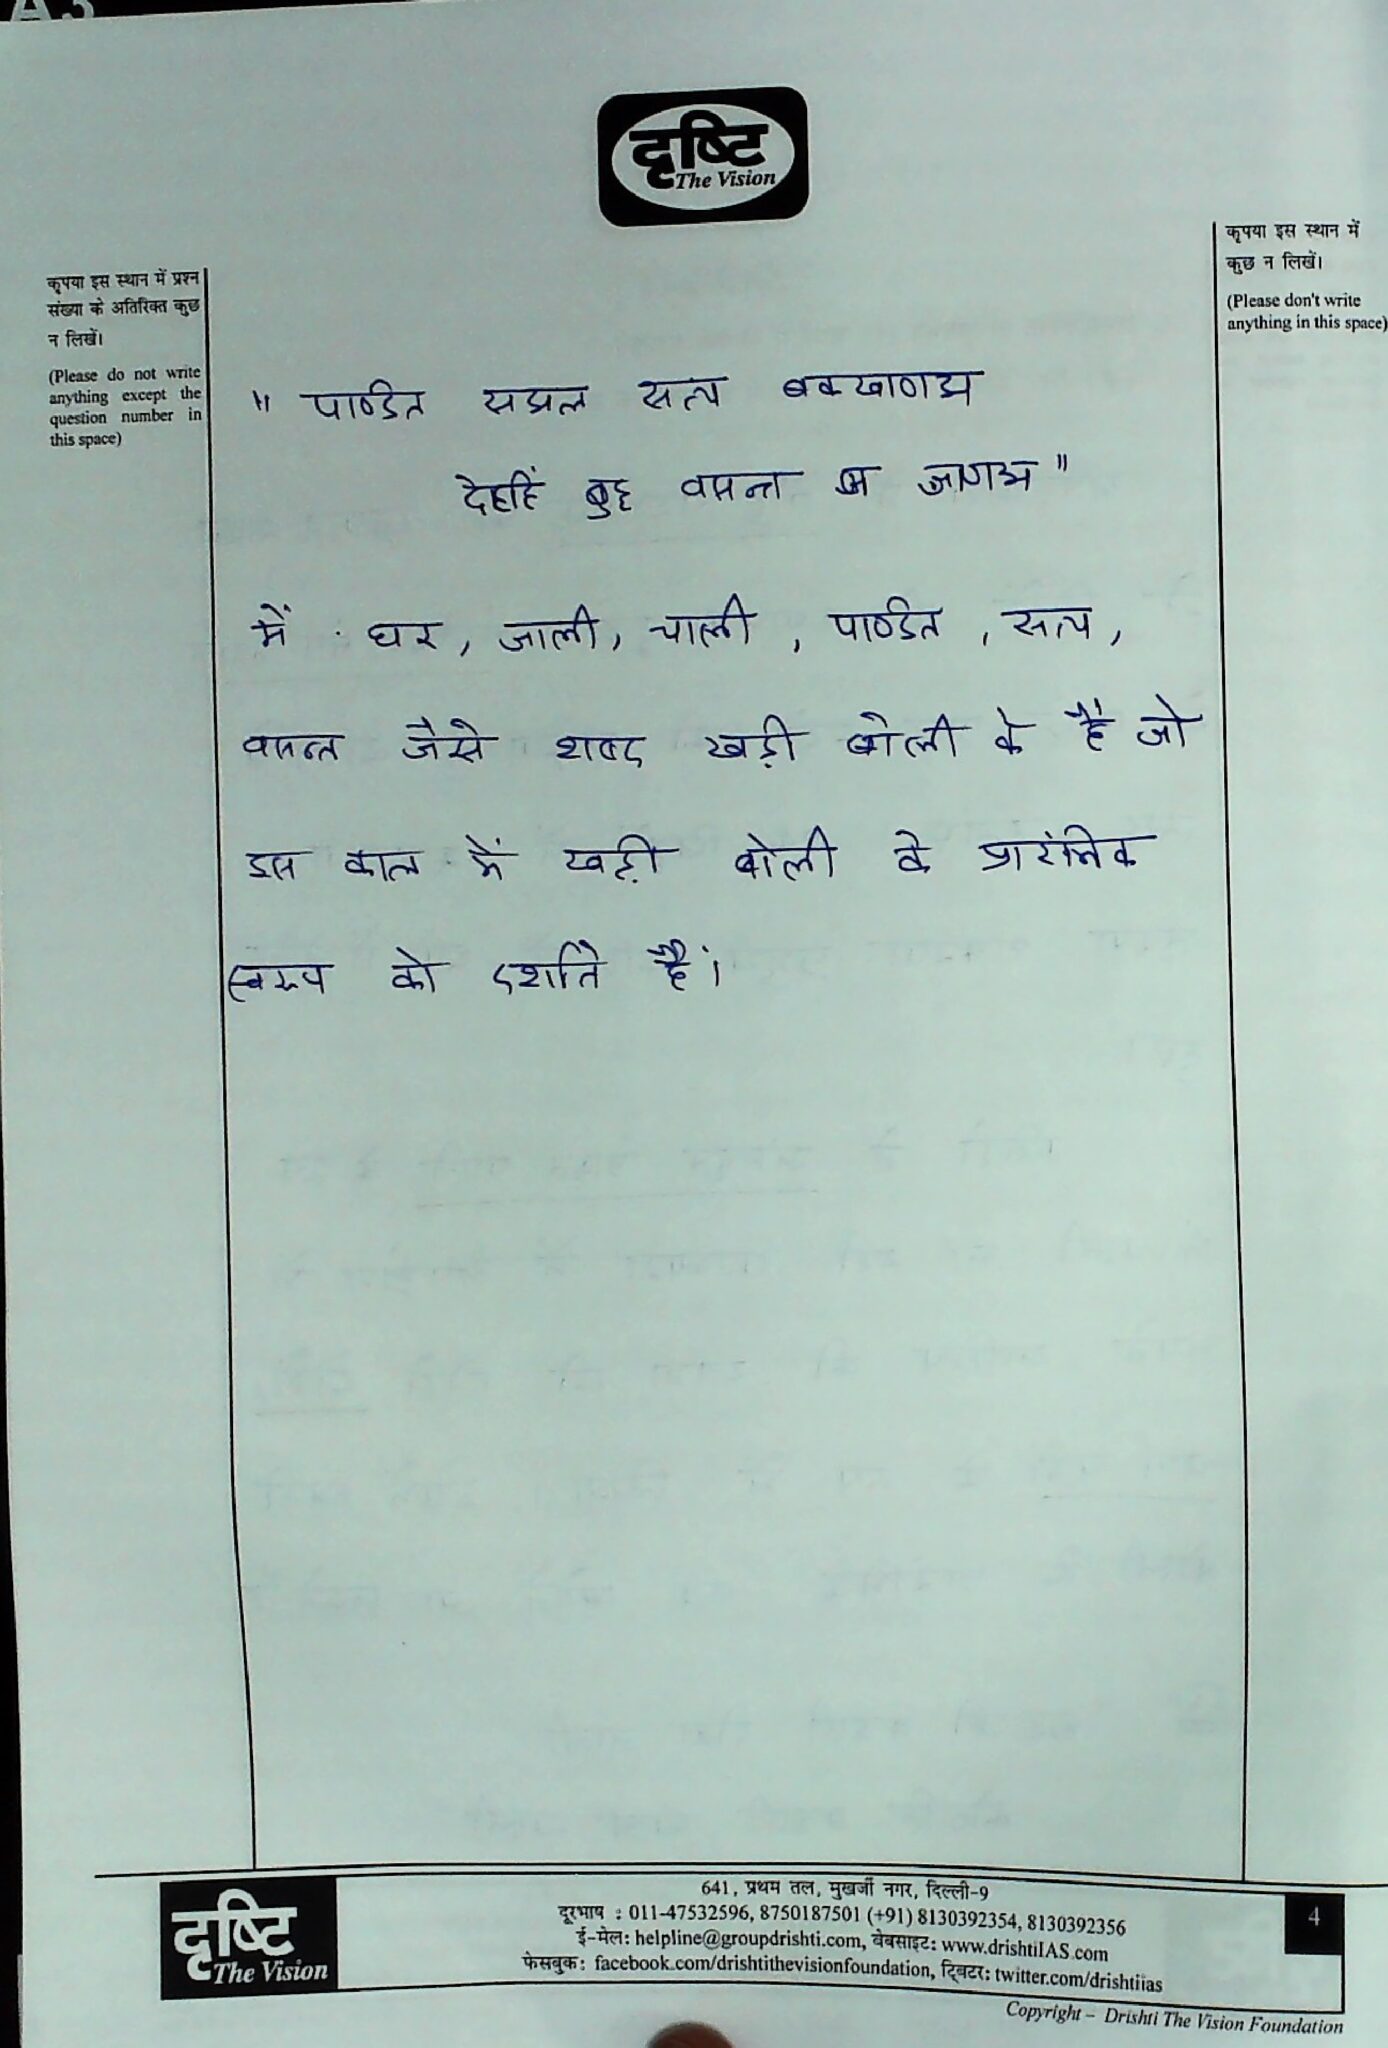 दृष्टि
The Vision
कृपया इस स्थान में प्रश्न
संख्या के अतिरिक्त कुछ
न लिखें।
(Please do not write
anything except the
question number in
this space)
कृपया इस स्थान में
कुछ न लिखें।
(Please don't write
anything in this space)
" पाण्डित सअल सत्य बक्खाणअ
देहहिं बुद्द वसन्त ण जाणअ "
में घर, जाली, चाली, पाण्डित, सत्य,
वसन्त जैसे शब्द खड़ी बोली के हैं जो
इस काल में खड़ी बोली के प्रारंभिक
स्वरूप को दर्शाते हैं।
दृष्टि
The Vision
641, प्रथम तल, मुखर्जी नगर, दिल्ली-9
दूरभाष : 011-47532596, 8750187501 (+91) 8130392354, 8130392356
ई-मेल: helpline@groupdrishti.com, वेबसाइट: www.drishtiIAS.com
फेसबुक: facebook.com/drishtithevisionfoundation, ट्विटर: twitter.com/drishtiias
4
Copyright – Drishti The Vision Foundation